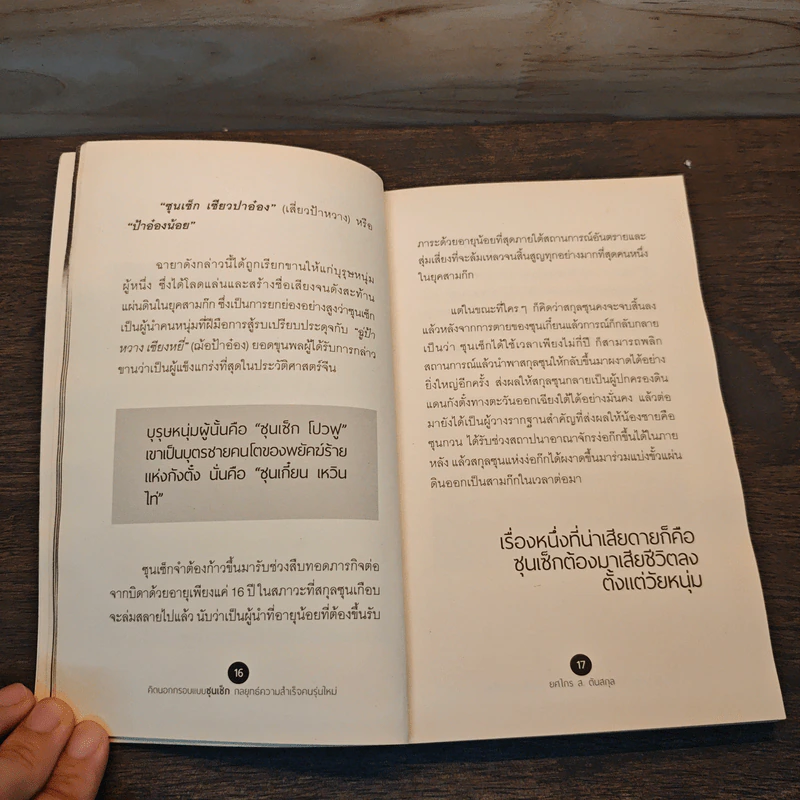 "ซุนเซ็ก เซียวปาอ๋อง" (เสี่ยวป้าหวาง) หรือ
"ป้าอ๋องน้อย"
ฉายาดังกล่าวนี้ได้ถูกเรียกขานให้แก่บุรุษหนุ่ม
ผู้หนึ่ง ซึ่งได้โลดแล่นและสร้างชื่อเสียงจนดังสะท้าน
แผ่นดินในยุคสามก๊ก ซึ่งเป็นการยกย่องอย่างสูงว่าซุนเซ็ก
เป็นผู้นำคนหนุ่มที่ฝีมือการสู้รบเปรียบประดุจกับ "ฉู่ป้า
หวาง เซียงหยี่" (ฌ้อป้าอ๋อง) ยอดขุนพลผู้ได้รับการกล่าว
ขานว่าเป็นผู้แข็งแกร่งที่สุดในประวัติศาสตร์จีน
บุรุษหนุ่มผู้นั้นคือ "ซุนเซ็ก โปวฟู"
เขาเป็นบุตรชายคนโตของพยัคฆ์ร้าย
แห่งกังตั๋ง นั่นคือ "ซุนเกี๋ยน เหวิน
ไท่"
ซุนเซ็กจำต้องก้าวขึ้นมารับช่วงสืบทอดภารกิจต่อ
จากบิดาด้วยอายุเพียงแค่ 16 ปี ในสภาวะที่สกุลซุนเกือบ
จะล่มสลายไปแล้ว นับว่าเป็นผู้นำที่อายุน้อยที่ต้องขึ้นรับ
16
คิดนอกกรอบแบบซุนเซ็ก กลยุทธ์ความสำเร็จคนรุ่นใหม่
ภาระด้วยอายุน้อยที่สุดภายใต้สถานการณ์อันตรายและ
สุ่มเสี่ยงที่จะล้มเหลวจนสิ้นสูญทุกอย่างมากที่สุดคนหนึ่ง
ในยุคสามก๊ก
แต่ในขณะที่ใครๆ ก็คิดว่าสกุลซุนคงจะจบสิ้นลง
แล้วหลังจากการตายของซุนเกี๋ยนแล้วการณ์ก็กลับกลาย
เป็นว่า ซุนเซ็กได้ใช้เวลาเพียงไม่กี่ปี ก็สามารถพลิก
สถานการณ์แล้วนำพาสกุลซุนให้กลับขึ้นมาผงาดได้อย่าง
ยิ่งใหญ่อีกครั้ง ส่งผลให้สกุลซุนกลายเป็นผู้ปกครองดิน
แดนกังตั๋งทางตะวันออกเฉียงใต้ได้อย่างมั่นคง แล้วต่อ
มายังได้เป็นผู้วางรากฐานสำคัญที่ส่งผลให้น้องชายคือ
ซุนกวน ได้รับช่วงสถาปนาอาณาจักรง่อก๊กขึ้นได้ในภาย
หลัง แล้วสกุลซุนแห่งง่อก๊กได้ผงาดขึ้นมาร่วมแบ่งขั้วแผ่น
ดินออกเป็นสามก๊กในเวลาต่อมา
เรื่องหนึ่งที่น่าเสียดายก็คือ
ซุนเซ็กต้องมาเสียชีวิตลง
ตั้งแต่วัยหนุ่ม
17
ยศไกร ส. ตันสกุล